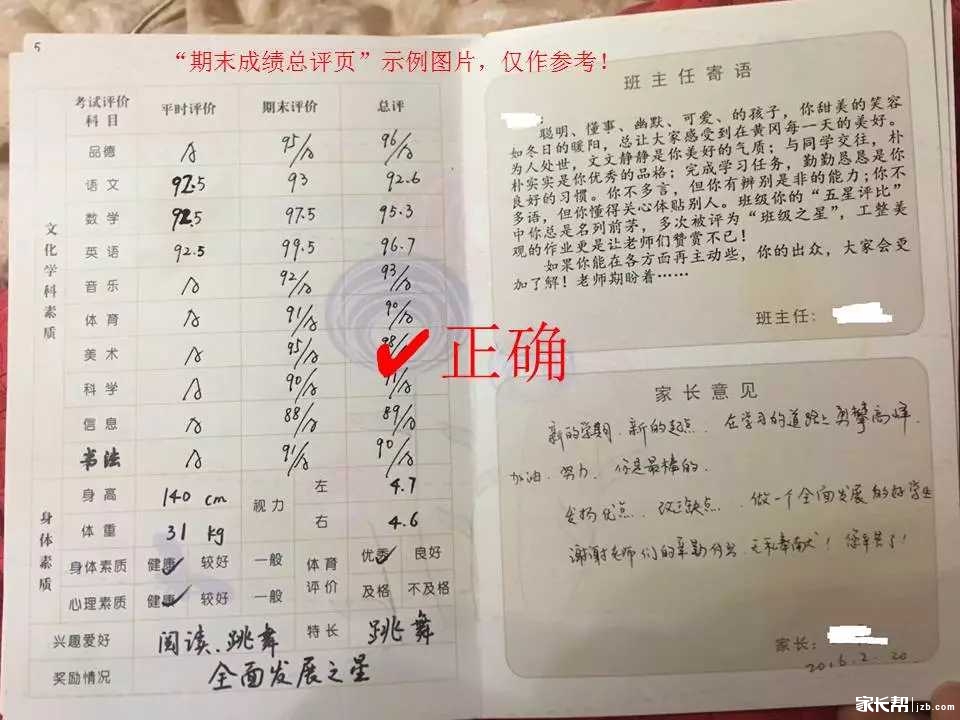 5
“期末成绩总评页”示例图片，仅作参考！
考试评价科目 平时评价 期末评价 总评
文化学科素质
品德 A 95/A 96/A
语文 92.5 93 92.6
数学 92.5 97.5 95.3
英语 92.5 99.5 96.7
音乐 A 92/A 93/A
体育 A 91/A 90/A
美术 A 95/A
科学 A 90/A
信息 A 88/A 89/A
书法 A 91/A 90/A
正确
身体素质
身高 140 cm 视力 左 4.7
体重 31 kg 右 4.6
身体素质 健康 较好 一般 体育评价 优秀 良好
心理素质 健康 较好 一般 及格 不及格
兴趣爱好 阅读、跳舞 特长 跳舞
奖励情况 全面发展之星
班主任寄语
聪明、懂事、幽默、可爱、的孩子，你甜美的笑容
如冬日的暖阳，总让大家感受到在黄冈每一天的美好。
为人处世，文文静静是你美好的气质；与同学交往，朴
朴实实是你优秀的品格；完成学习任务，勤勤恳恳是你
良好的习惯。你不多言，但你有辨别是非的能力；你不
多语，但你懂得关心体贴别人。班级你的“五星评比”
中你总是名列前茅，多次被评为“班级之星”，工整美
观的作业更是让老师们赞赏不已！
如果你能在各方面再主动些，你的出众，大家会更
加了解！老师期盼着……
班主任：
家长意见
新的学期、新的起点、在学习的道路上勇攀高峰．
加油、努力、你是最棒的．
发扬优点、改正缺点、做一个全面发展的好学生
谢谢老师们的辛勤付出、无私奉献！您辛苦了！
家长：
2016.2.20
家长帮 jzb.com